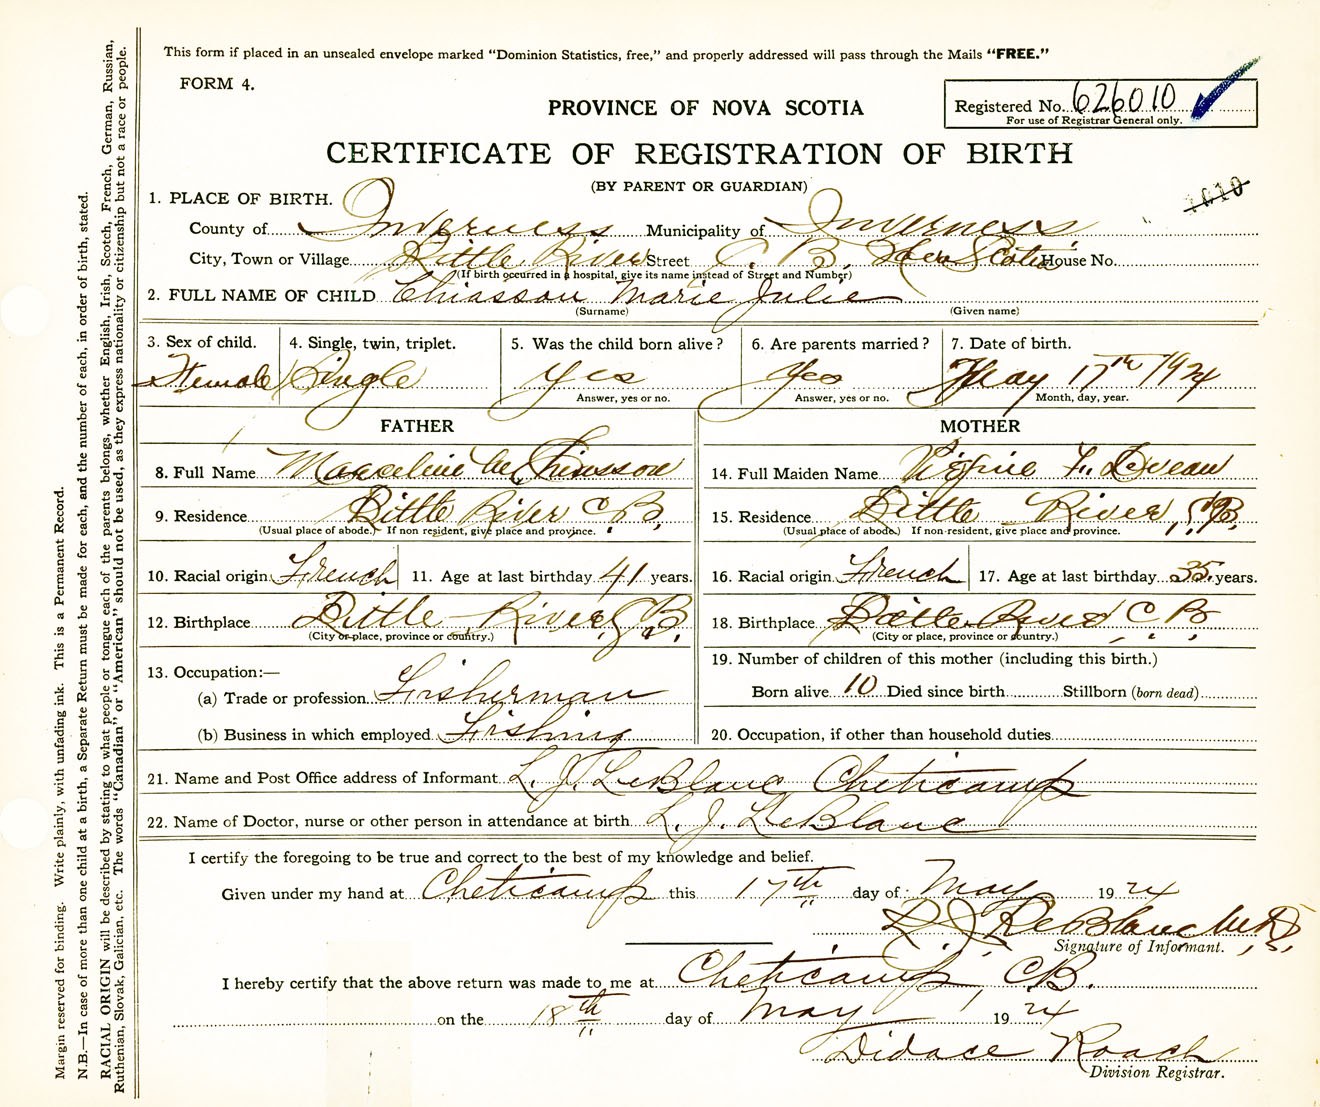 This form if placed in an unsealed envelope marked "Dominion Statistics, free," and properly addressed will pass through the Mails "FREE."
FORM 4.
Registered No. 626010
For use of Registrar General only.
PROVINCE OF NOVA SCOTIA
CERTIFICATE OF REGISTRATION OF BIRTH
(BY PARENT OR GUARDIAN)
1010
1. PLACE OF BIRTH.
County of Inverness Municipality of Inverness
City, Town or Village Little River Street C. B. Nova Scotia House No.
(If birth occurred in a hospital, give its name instead of Street and Number)
2. FULL NAME OF CHILD Chiasson Marie Julie
(Surname) (Given name)
3. Sex of child. 4. Single, twin, triplet. 5. Was the child born alive? 6. Are parents married? 7. Date of birth.
Female Single Yes Yes May 17th 1924
Answer, yes or no. Answer, yes or no. Month, day, year.
FATHER MOTHER
8. Full Name Marceline Chiasson 14. Full Maiden Name L. Deveau
9. Residence Little River C. B. 15. Residence Little River, C. B.
(Usual place of abode.) If non resident, give place and province. (Usual place of abode.) If non-resident, give place and province.
10. Racial origin French 11. Age at last birthday 41 years. 16. Racial origin French 17. Age at last birthday 35 years.
12. Birthplace Little River, C. B. 18. Birthplace Little River C. B.
(City or place, province or country.) (City or place, province or country.)
13. Occupation:— 19. Number of children of this mother (including this birth.)
(a) Trade or profession Fisherman Born alive 10 Died since birth Stillborn (born dead)
(b) Business in which employed Fishing 20. Occupation, if other than household duties
21. Name and Post Office address of Informant L. J. LeBlanc Cheticamp
22. Name of Doctor, nurse or other person in attendance at birth L. J. LeBlanc
I certify the foregoing to be true and correct to the best of my knowledge and belief.
Given under my hand at Cheticamp this 17th day of May 1924
L J LeBlanc M.D.
Signature of Informant.
I hereby certify that the above return was made to me at Cheticamp, C.B.
on the 18th day of May 1924
Didace Roach
Division Registrar.
Margin reserved for binding. Write plainly, with unfading ink. This is a Permanent Record.
N.B.—In case of more than one child at a birth, a Separate Return must be made for each, and the number of each, in order of birth, stated.
RACIAL ORIGIN will be described by stating to what people or tongue each of the parents belongs, whether English, Irish, Scotch, French, German, Russian,
Ruthenian, Slovak, Galician, etc. The words "Canadian" or "American" should not be used, as they express nationality or citizenship but not a race or people.